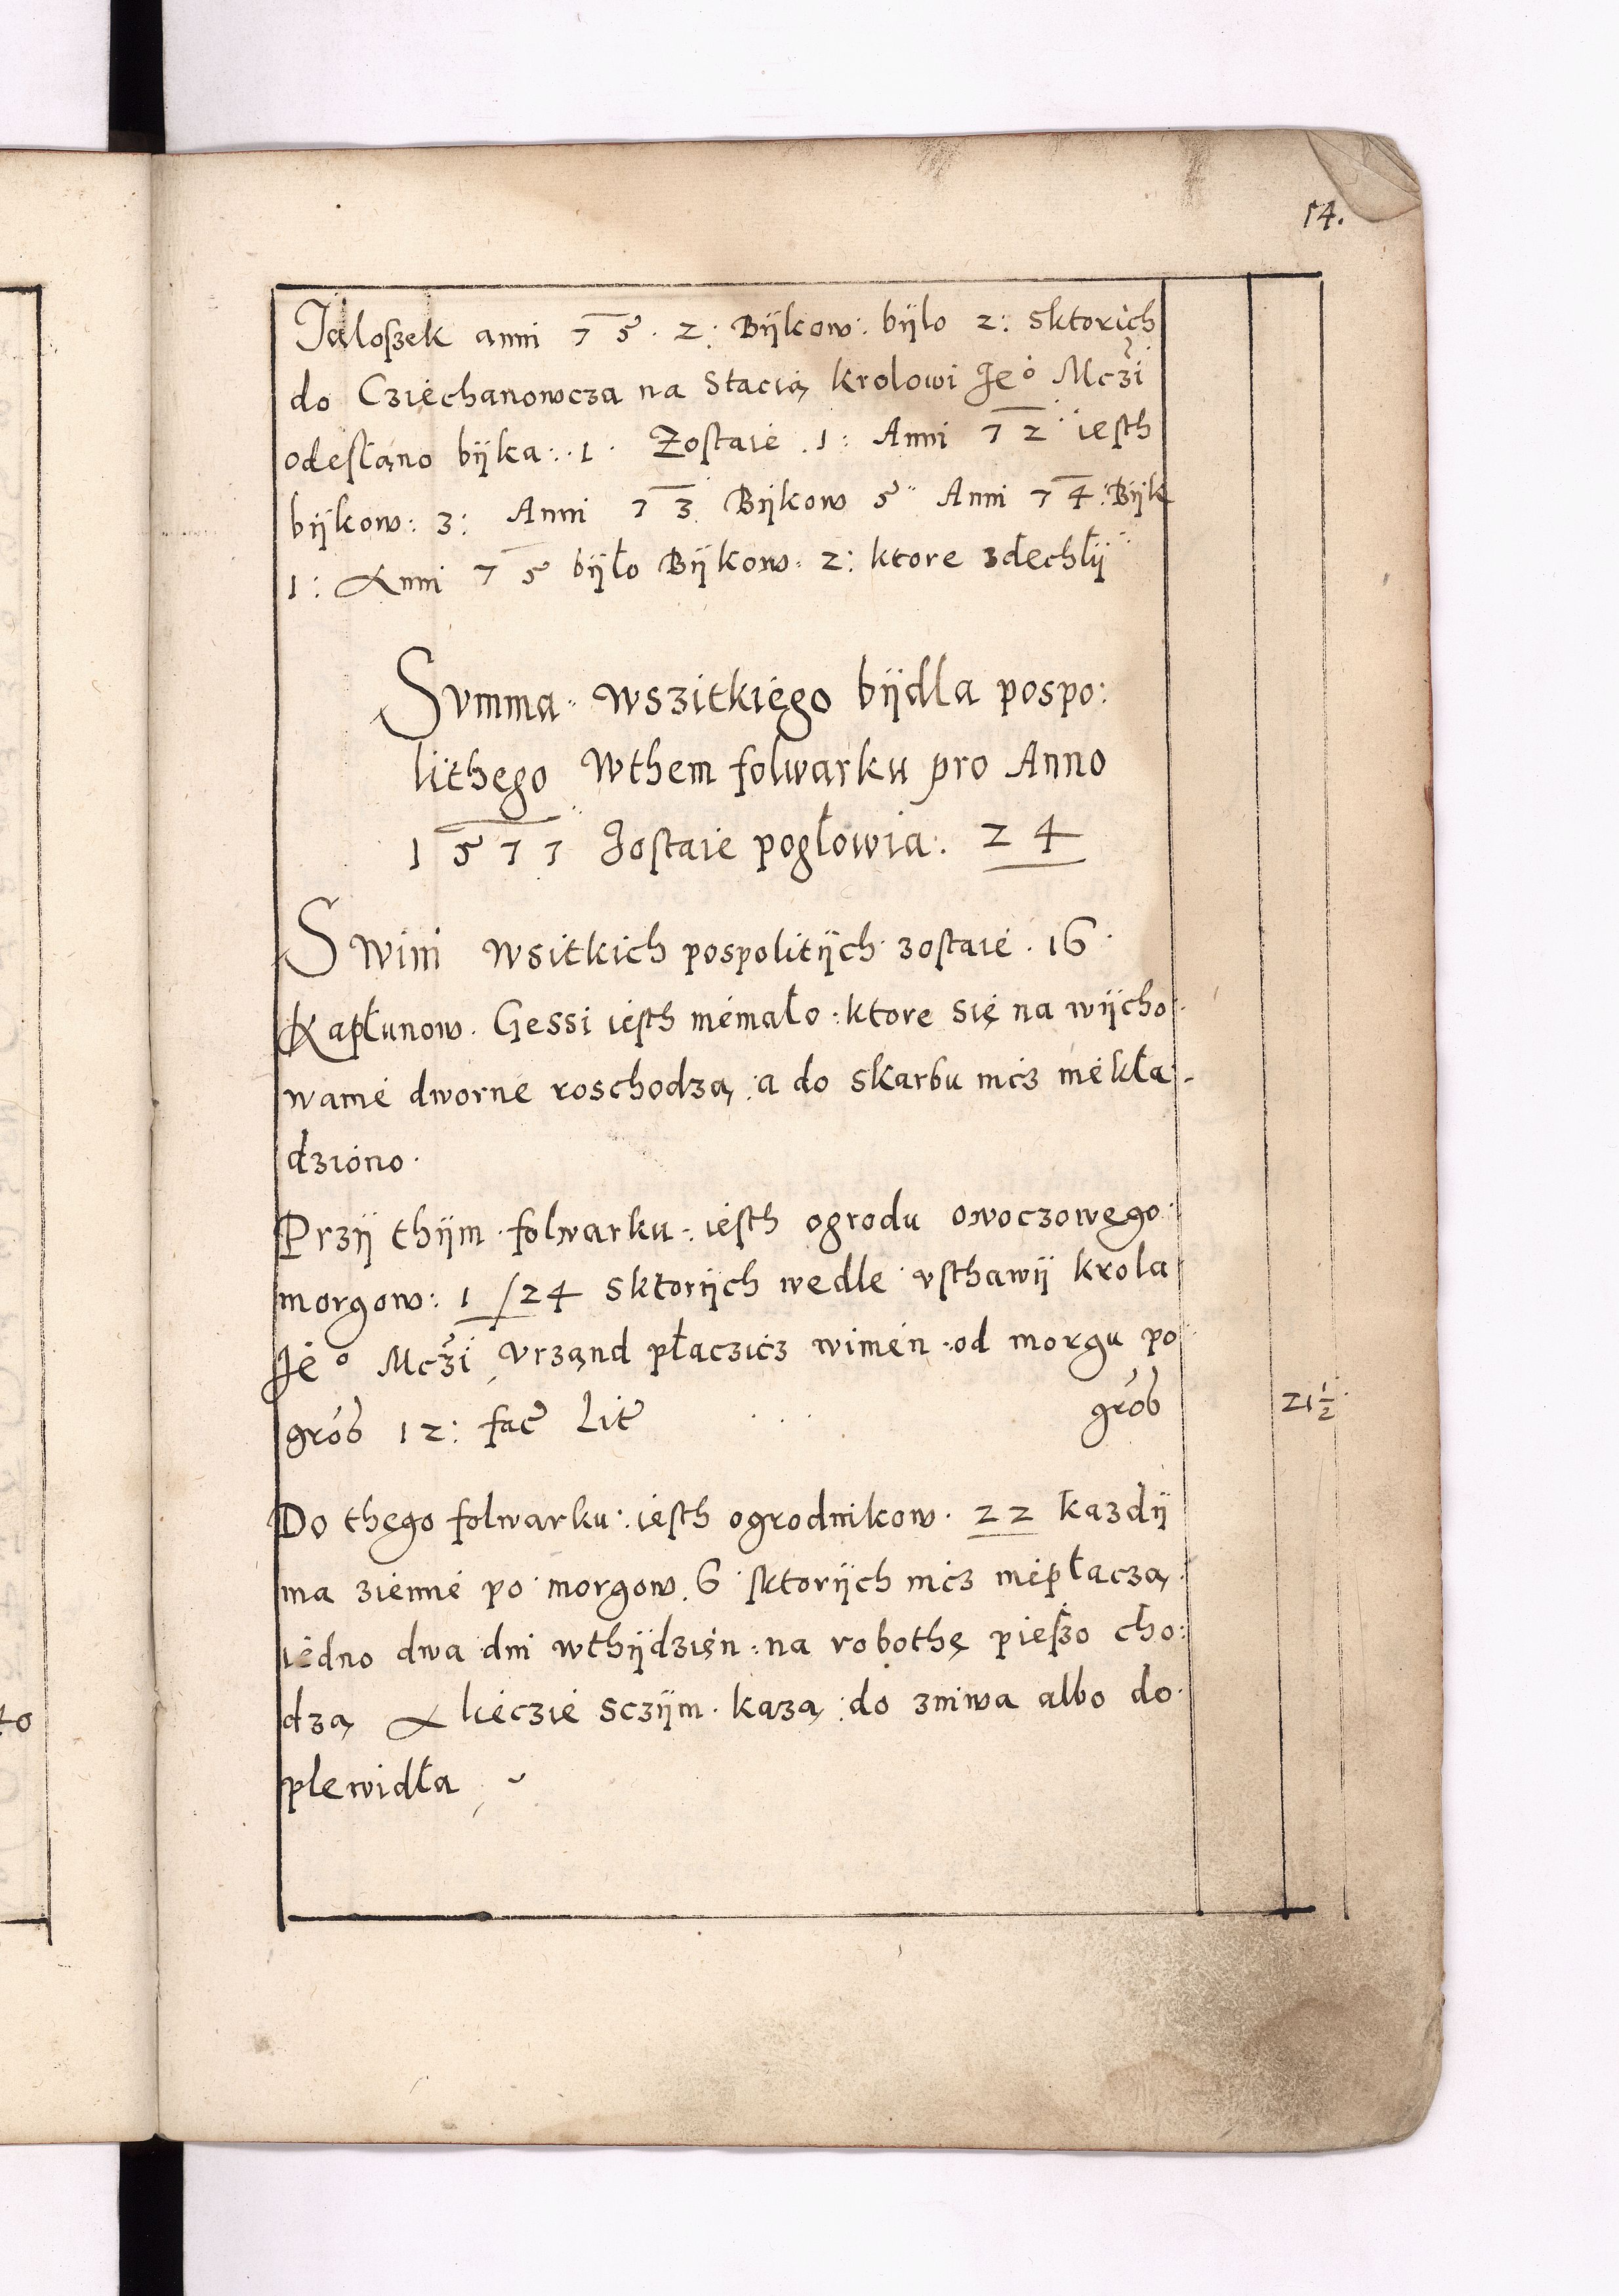 14.
Jałoszek anni 75. 2: Bijkow: bijlo 2: sktorich
do Cziechanowcza na Stacią krolowi Je° Mczi
odesłano bijka: 1. Zostaie .1: Anni 72 iesth
bijkow: 3: Anni 73 Bijkow 5 Anni 74: Bijk
1: Anni 75 bijło Bijkow. 2: ktore zdechłij
Summa wszitkiego bijdla pospo:
lithego Wthem folwarku pro Anno
1577 Zostaie pogłowia: 24
Swini wsitkich pospolitijch zostaie. 16.
Kapłunow. Gessi iesth niemało: ktore się na wijcho:
wanie dworne roschodzą: a do skarbu nicz niekła:
dziono.
Przij thijm folwarku: iesth ogrodu owoczowego
morgow: 1 /24 sktorijch wedle vsthawij krola
Je° Mczi Vrzand płaczicz winien od morgu po
grob 12: fac Lit grob 21 1/2
Do thego folwarku: iesth ogrodnikow. 22 kazdij
ma ziemie po morgow. 6 sktorijch nicz niepłaczą
iedno dwa dni wthijdzień na robothę pieszo cho:
dzą A lieczie sczijm kazą: do zniwa albo do
plewidła
to